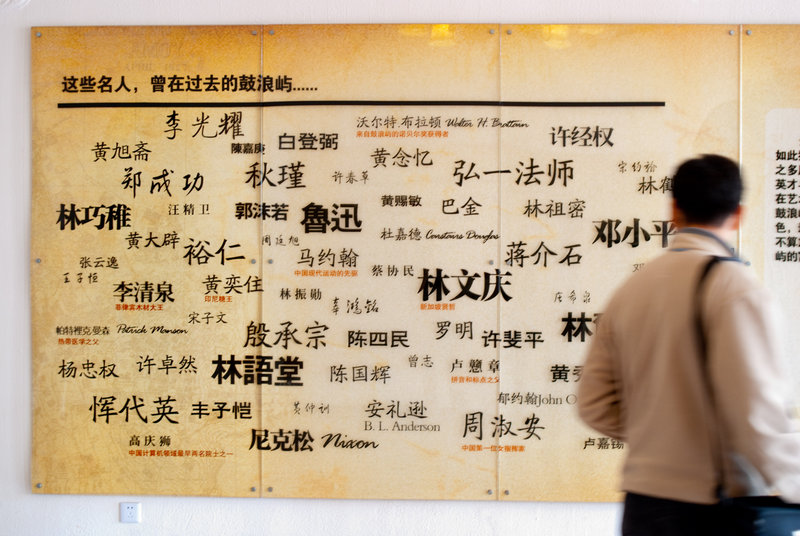 这些名人，曾在过去的鼓浪屿......
李光耀
沃尔特.布拉顿 Walter H. Brattain
来自鼓浪屿的诺贝尔奖获得者
许经权
白登弼
陳嘉庚
黄旭斋
黄念忆
郑成功
秋瑾
许春草
弘一法师
林巧稚
汪精卫
郭沫若
魯迅
黄赐敏
巴金
林祖密
杜嘉德 Constairs Douglas
邓小平
黄大辟
裕仁
马约翰
中国现代运动的先驱
蒋介石
张云逸
王子恒
蔡协民
林文庆
新加坡贤哲
李清泉
菲律宾木材大王
黄奕住
印尼糖王
林振勋
辜鸿铭
宋子文
帕特裡克.曼森 Patrick Manson
热带医学之父
殷承宗
陈四民
罗明
许斐平
林
杨忠权
许卓然
林語堂
陈国辉
曾志
卢戆章
拼音和标点之父
黄
恽代英
丰子恺
黄仲训
安礼逊
B. L. Anderson
郁约翰John O
周淑安
中国第一位女指挥家
高庆狮
中国计算机领域最早两名院士之一
尼克松 Nixon
卢嘉锡
如此
之多
英才
在艺
鼓浪
色，
不算
屿的